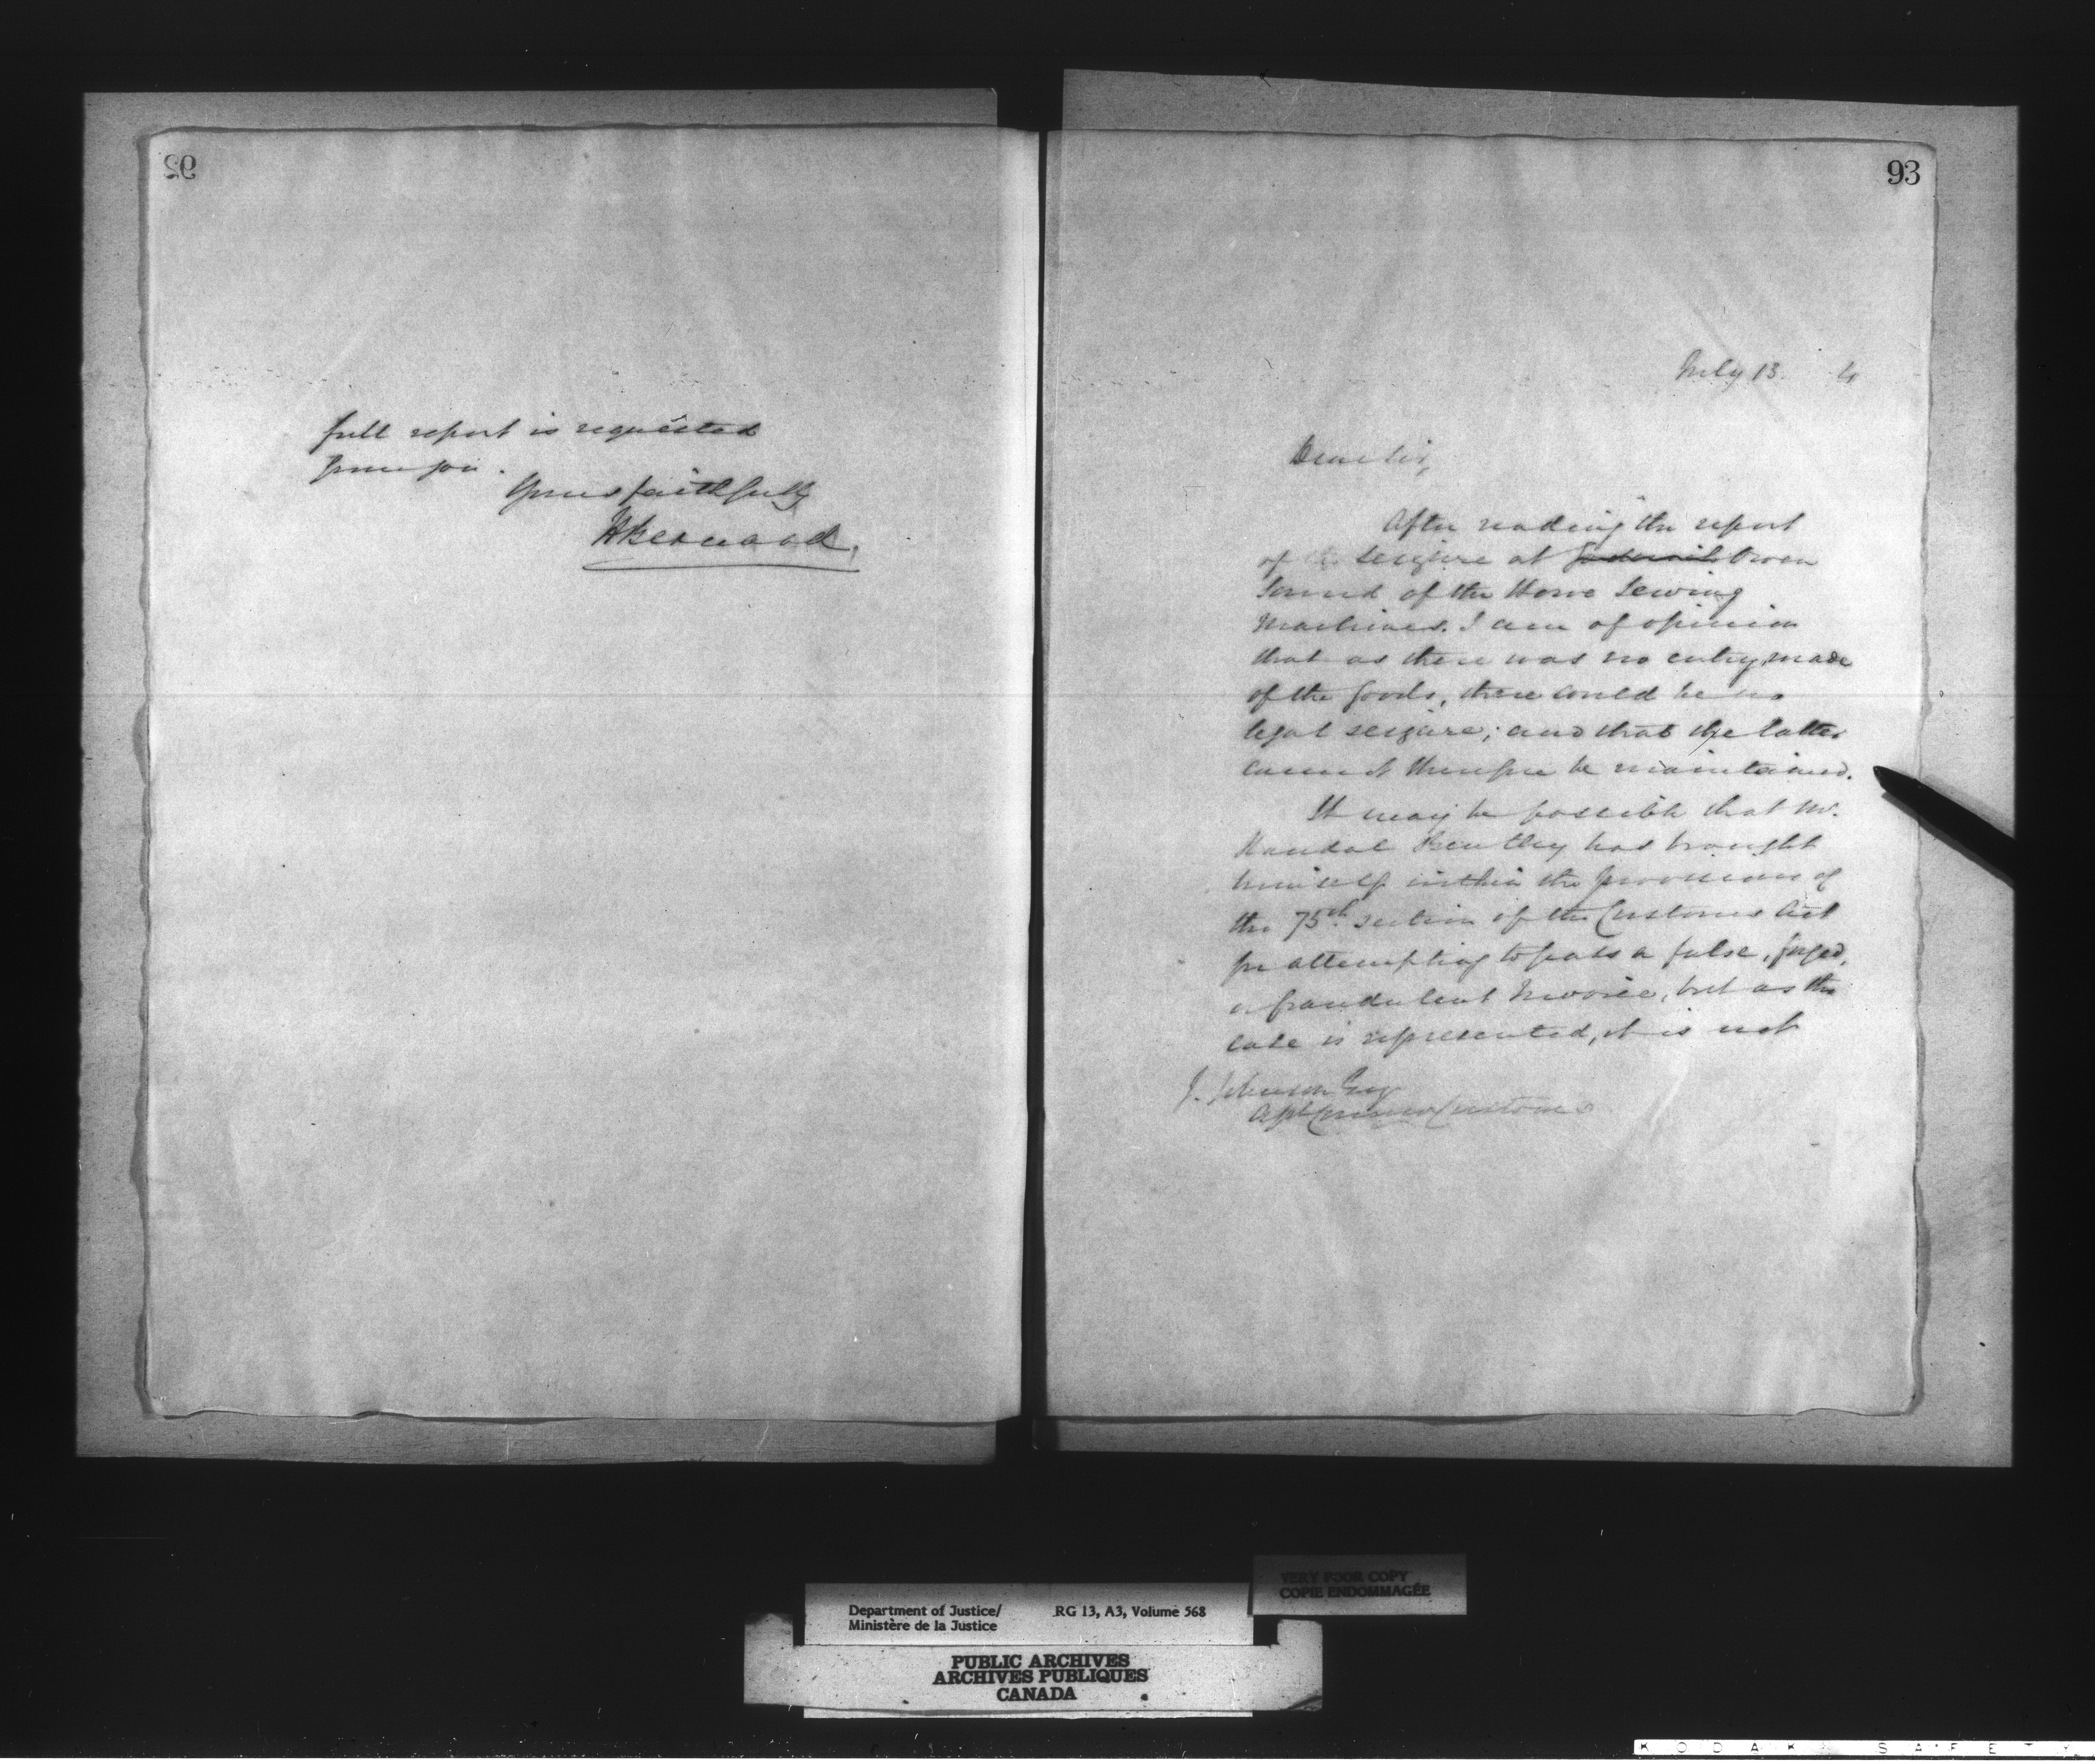 92
full report is requested
from you.
Yours faithfully
H Bernard.
93
July 13. 4
Dear Sir,
After reading the report
of the seizure at Owen
Sound of the Howe Sewing
Machines. I am of opinion
that as there was no entry made
of the goods, there could be no
legal seizure; and that the latter
cannot therefore be maintained.
It may be possible that Mr.
Bentley has brought
himself within the provisions of
the 75th. section of the Customs Act
for attempting to pass a false, forged,
or fraudulent Invoice, but as the
case is represented, it is not
J. Johnson Esq
Asst Commr Customs
VERY POOR COPY
COPIE ENDOMMAGÉE
Department of Justice/ RG 13, A3, Volume 568
Ministère de la Justice
PUBLIC ARCHIVES
ARCHIVES PUBLIQUES
CANADA
KODAK SAFETY